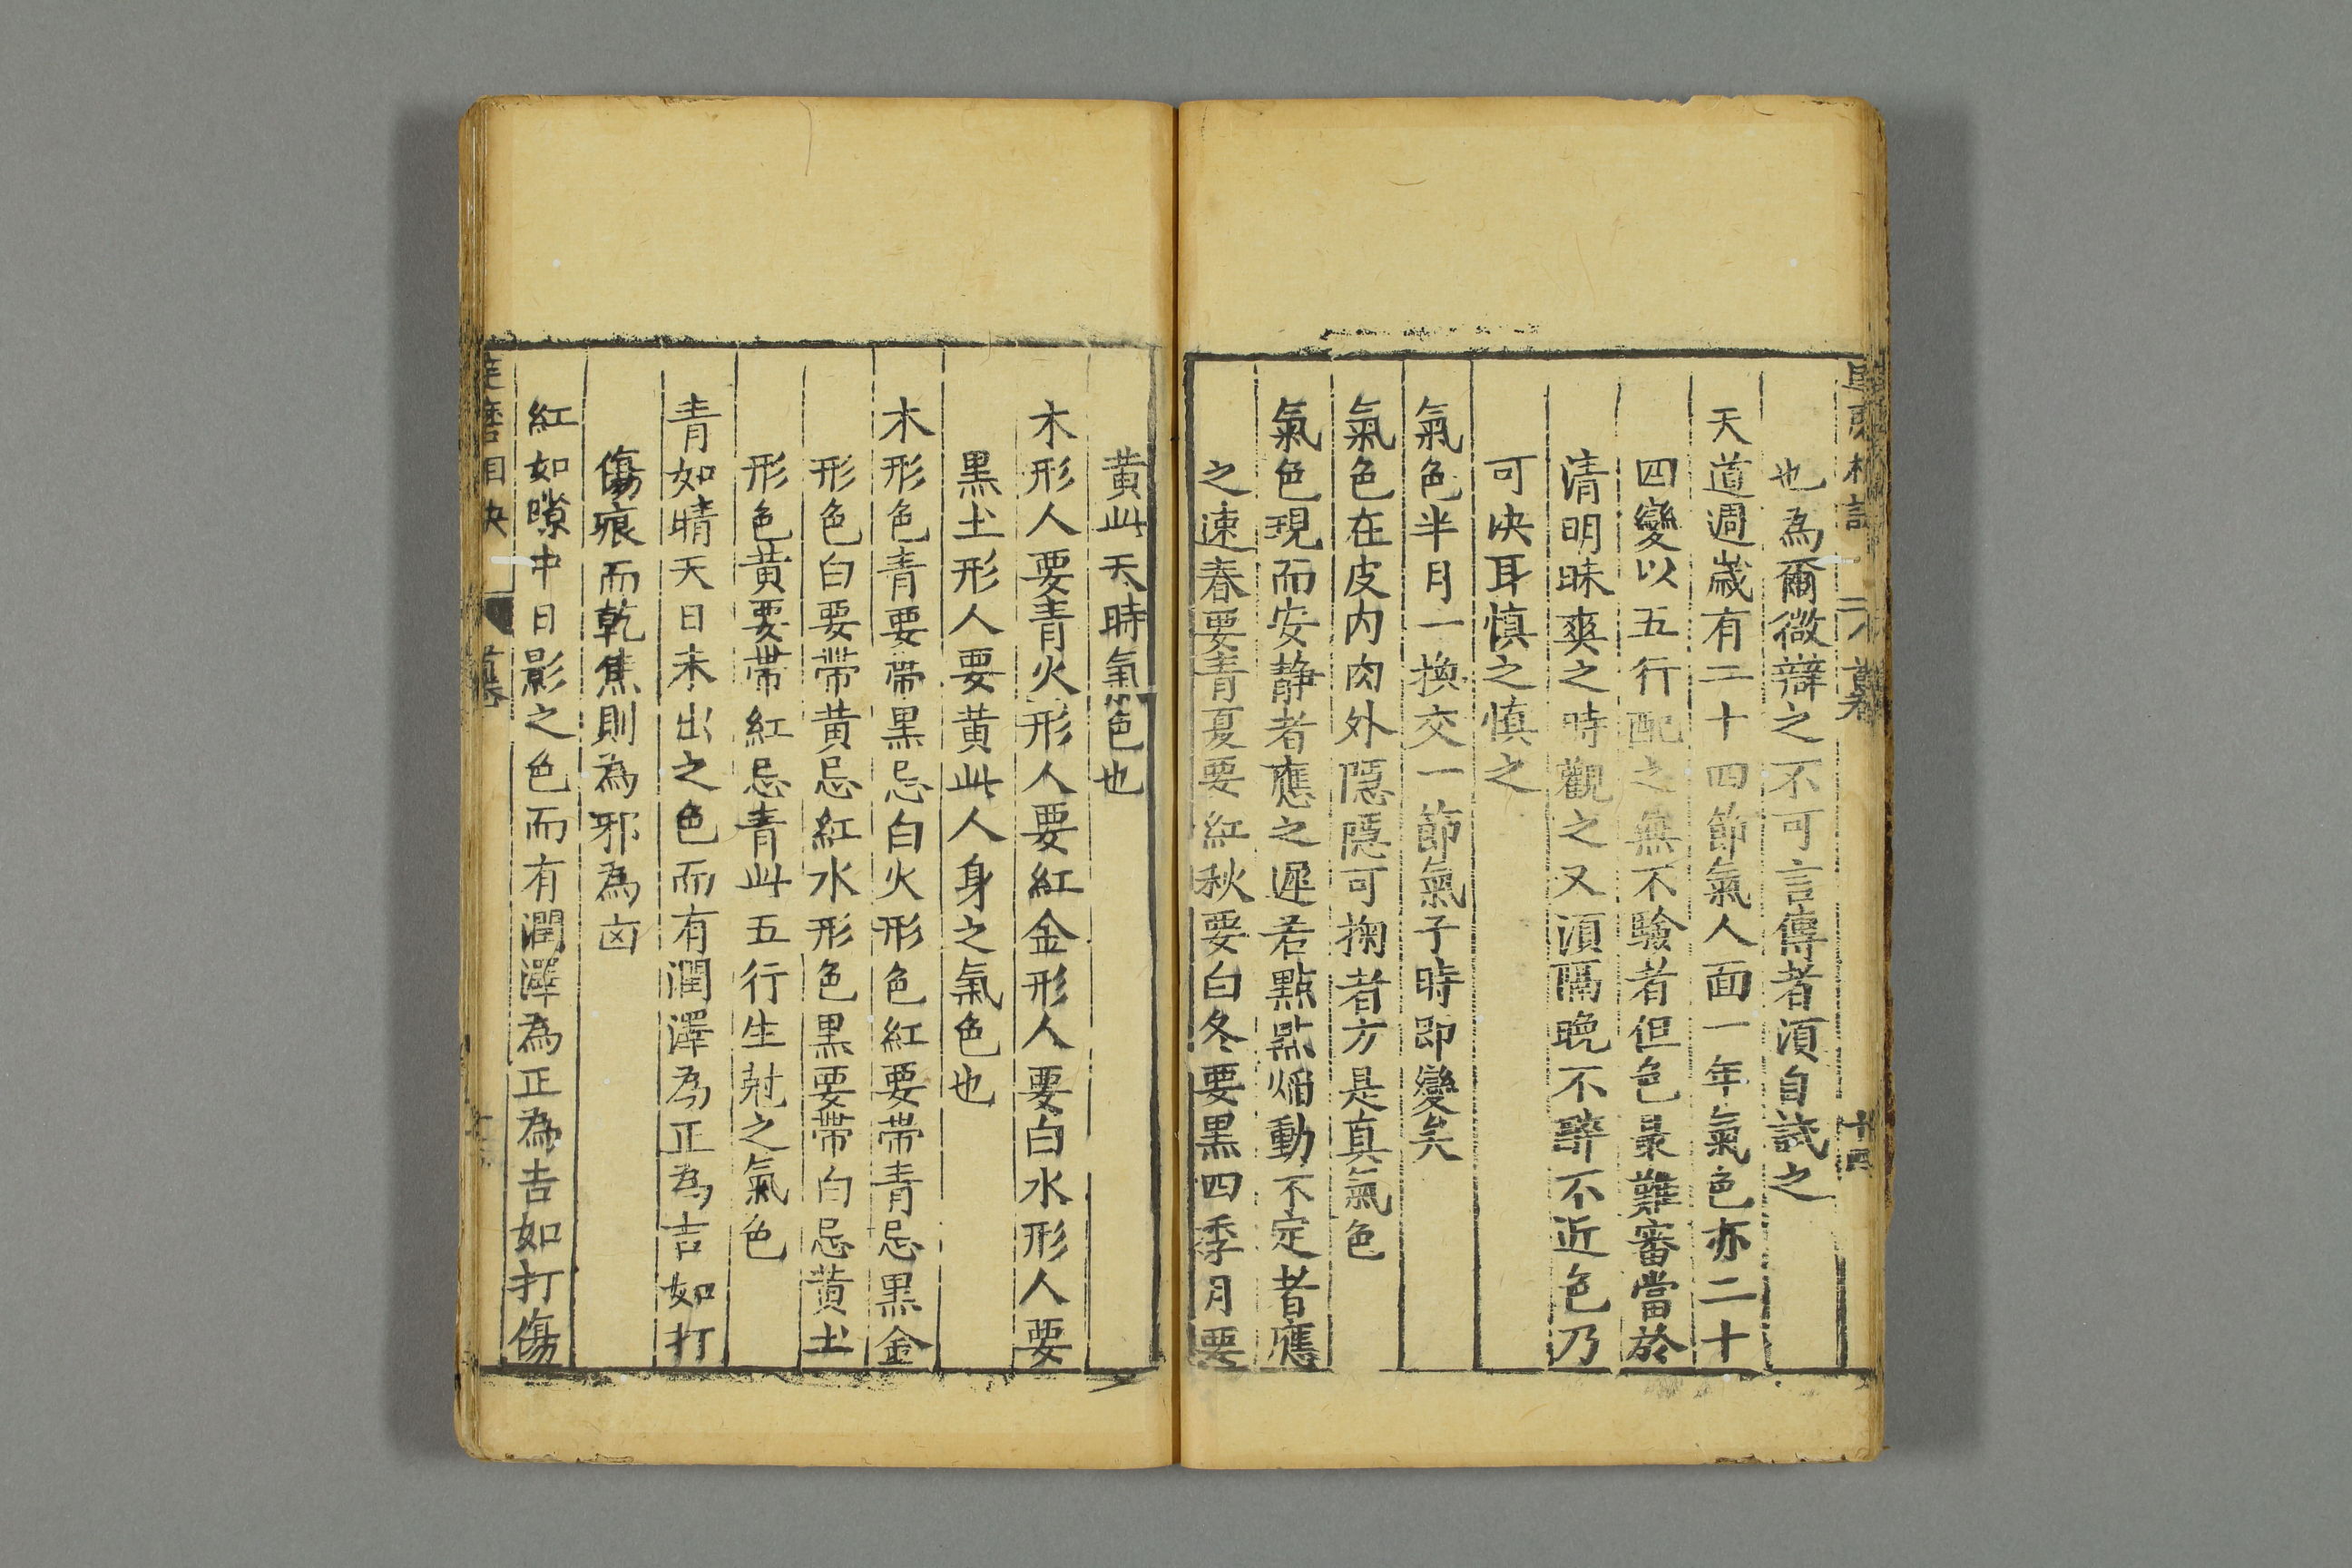 也為爾微辯之不可言傳者須自試之
天道週歲有二十四節氣人面一年氣色亦二十
四變以五行配之無不驗者但色最難審當於
清明昧爽之時觀之又須隔晚不醉不近色乃
可决耳慎之慎之
氣色半月一換交一節氣子時即變矣
氣色在皮内肉外隱隱可掬者方是真氣色
氣色現而安静者應之遲若點點焰動不定者應
之速春要青夏要紅秋要白冬要黒四季月要
黄此天時氣色也
木形人要青火形人要紅金形人要白水形人要
黒土形人要黄此人身之氣色也
木形色青要帶黒忌白火形色紅要帶青忌黒金
形色白要帶黄忌紅水形色黒要帶白忌黄土
形色黄要帶紅忌青此五行生尅之氣色
青如晴天日未出之色而有潤澤為正為吉如打
傷痕而乾焦則為邪為凶
紅如隙中日影之色而有潤澤為正為吉如打傷